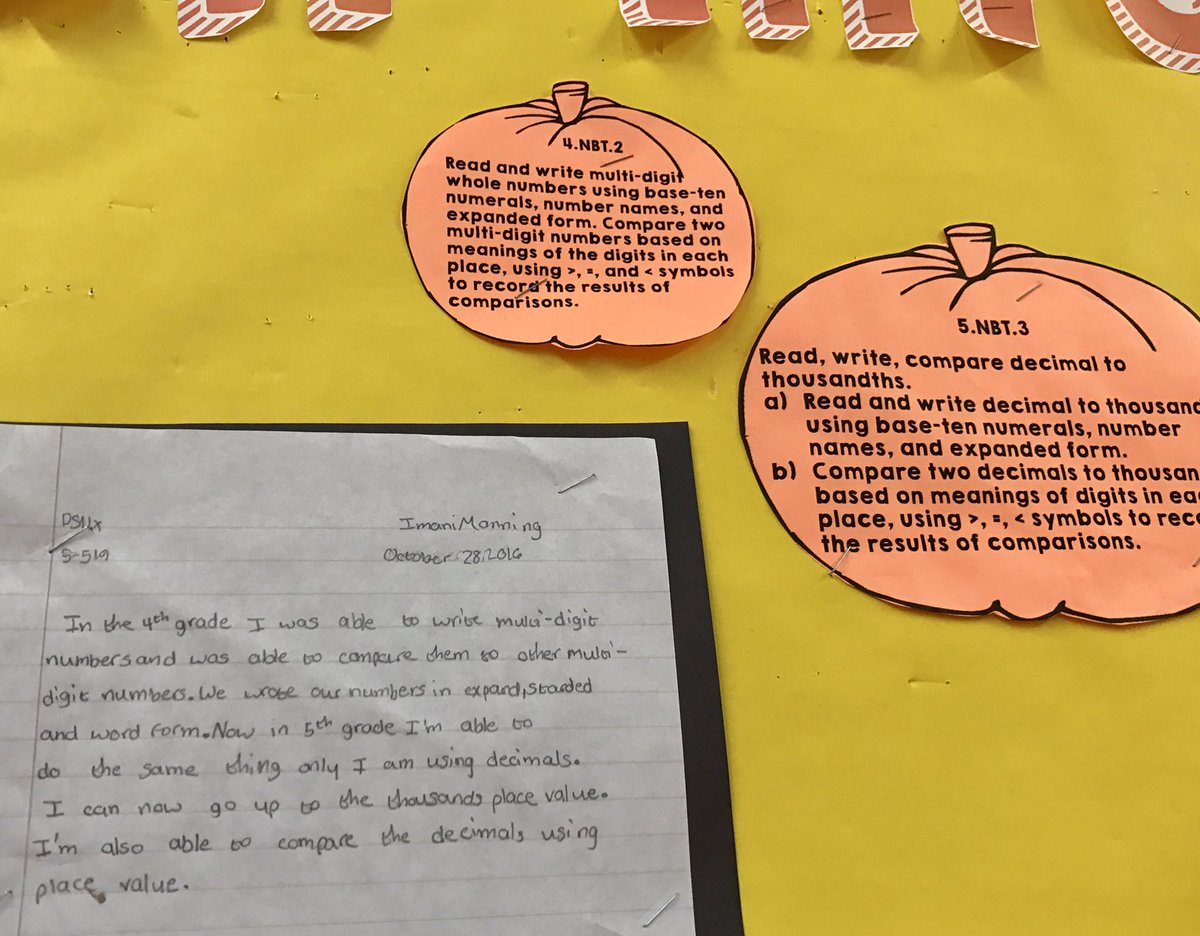 4.NBT.2
Read and write multi-digit
whole numbers using base-ten
numerals, number names, and
expanded form. Compare two
multi-digit numbers based on
meanings of the digits in each
place, using >, =, and < symbols
to record the results of
comparisons.
5.NBT.3
Read, write, compare decimal to
thousandths.
a) Read and write decimal to thousand
using base-ten numerals, number
names, and expanded form.
b) Compare two decimals to thousan
based on meanings of digits in ea
place, using >, =, < symbols to rec
the results of comparisons.
Imani Manning
5-519
October 28, 2016
In the 4th grade I was able to write multi-digit
numbers and was able to compare them to other multi-
digit numbers. We wrote our numbers in expand, starded
and word form. Now in 5th grade I'm able to
do the same thing only I am using decimals.
I can now go up to the thousands place value.
I'm also able to compare the decimals using
place value.